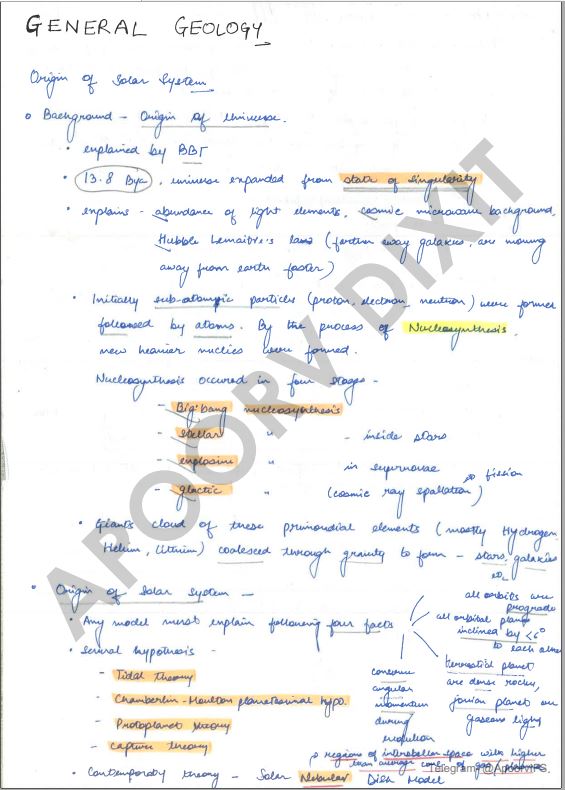 GENERAL GEOLOGY
Origin of Solar System
Background - Origin of universe.
• explained by BBT
• 13.8 Bya, universe expanded from state of singularity
• explains - abundance of light elements, cosmic microwave background,
Hubble Lemaitre's law (farther away galaxies, are moving
away from earth faster)
• Initially sub-atomic particles (proton, electron, neutron) were formed
followed by atoms. By the process of Nucleosynthesis,
new heavier nuclies were formed.
Nucleosynthesis occured in four stages -
- Big bang nucleosynthesis
- stellar " - inside stars
- explosive " in supernovae
- glactic " (cosmic ray spallation) fission
• Giants cloud of these primordial elements (mostly Hydrogen
Helium, Litrium) coalesced through gravity to form - stars, galaxies
• Origin of Solar System -
all orbits are
prograde
• Any model must explain following four facts
all orbital plane
inclined by <6°
to each other
• Several hypothesis -
- Tidal theory
- Chamberlin-Moulton planetesimal hypo.
- Protoplanet theory
- capture theory
conserve
angular
momentum
during
evolution
terrestial planet
are dense rocky,
jovian planet are
gaseous light
regions of interstellar space with higher
than average conc. of gas/
• Contemporary theory - Solar Nebular Disk Model
APOORV DIXIT
Telegram- @ApoorvIFS